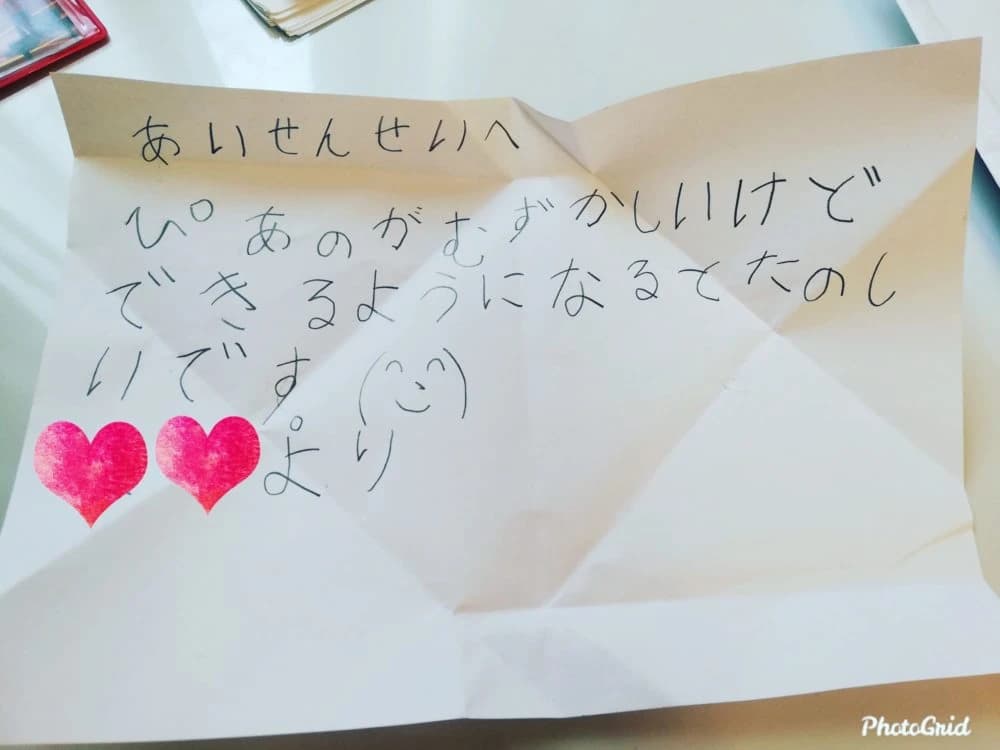 あいせんせいへ
ぴあのがむずかしいけど
できるようになるとたのし
いです
より
PhotoGrid